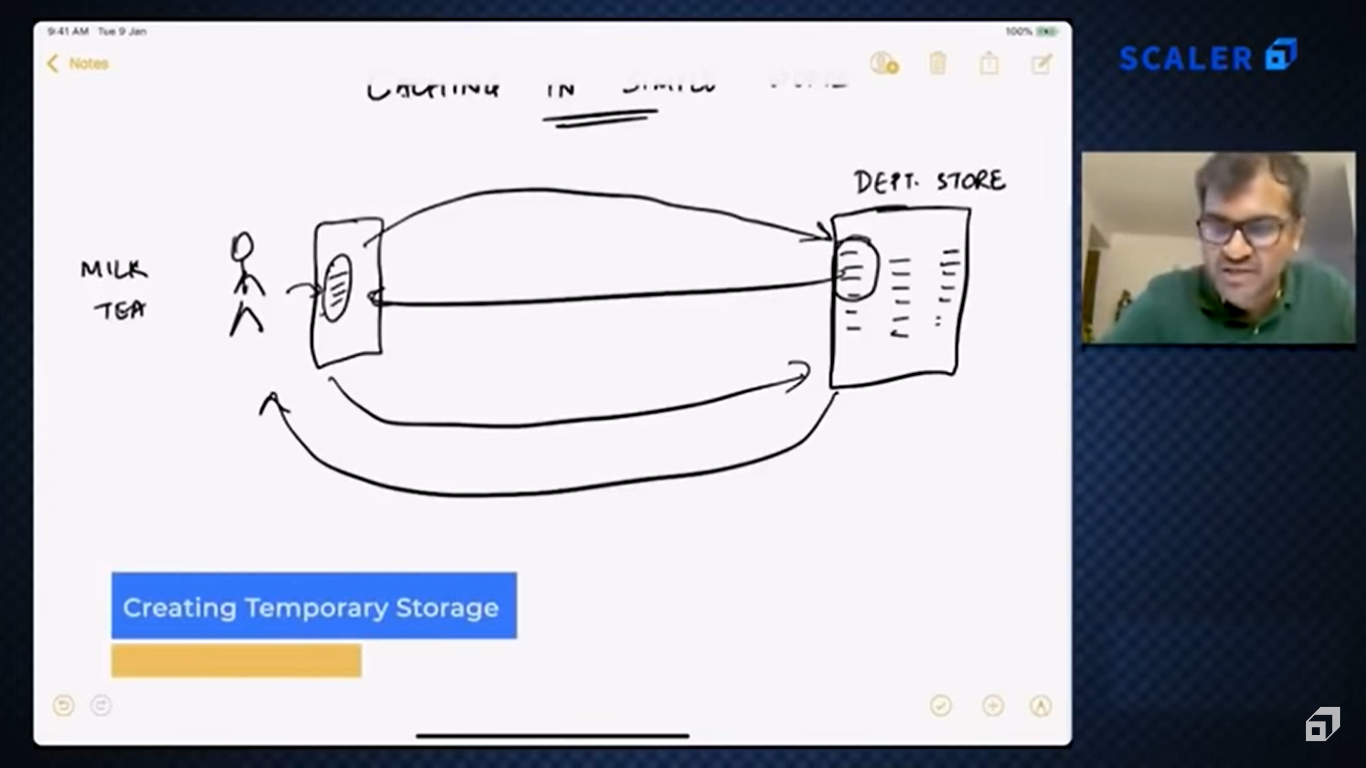 9:41 AM Tue 9 Jan
100%
Notes
SCALER
CACHING IN SIMPLE
DEPT. STORE
MILK
TEA
Creating Temporary Storage